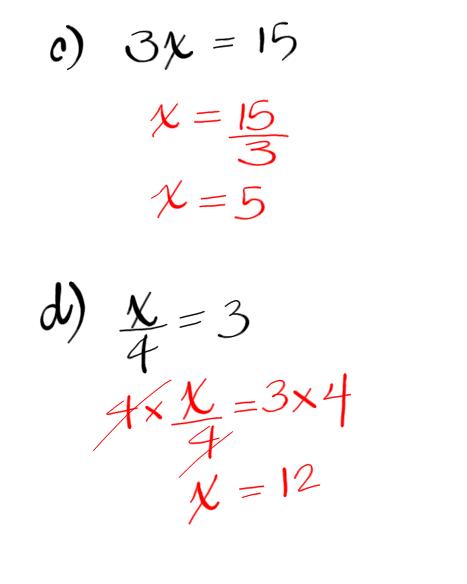 c) 3x = 15
x = 15/3
x = 5
d) x/4 = 3
4 × x/4 = 3 × 4
x = 12